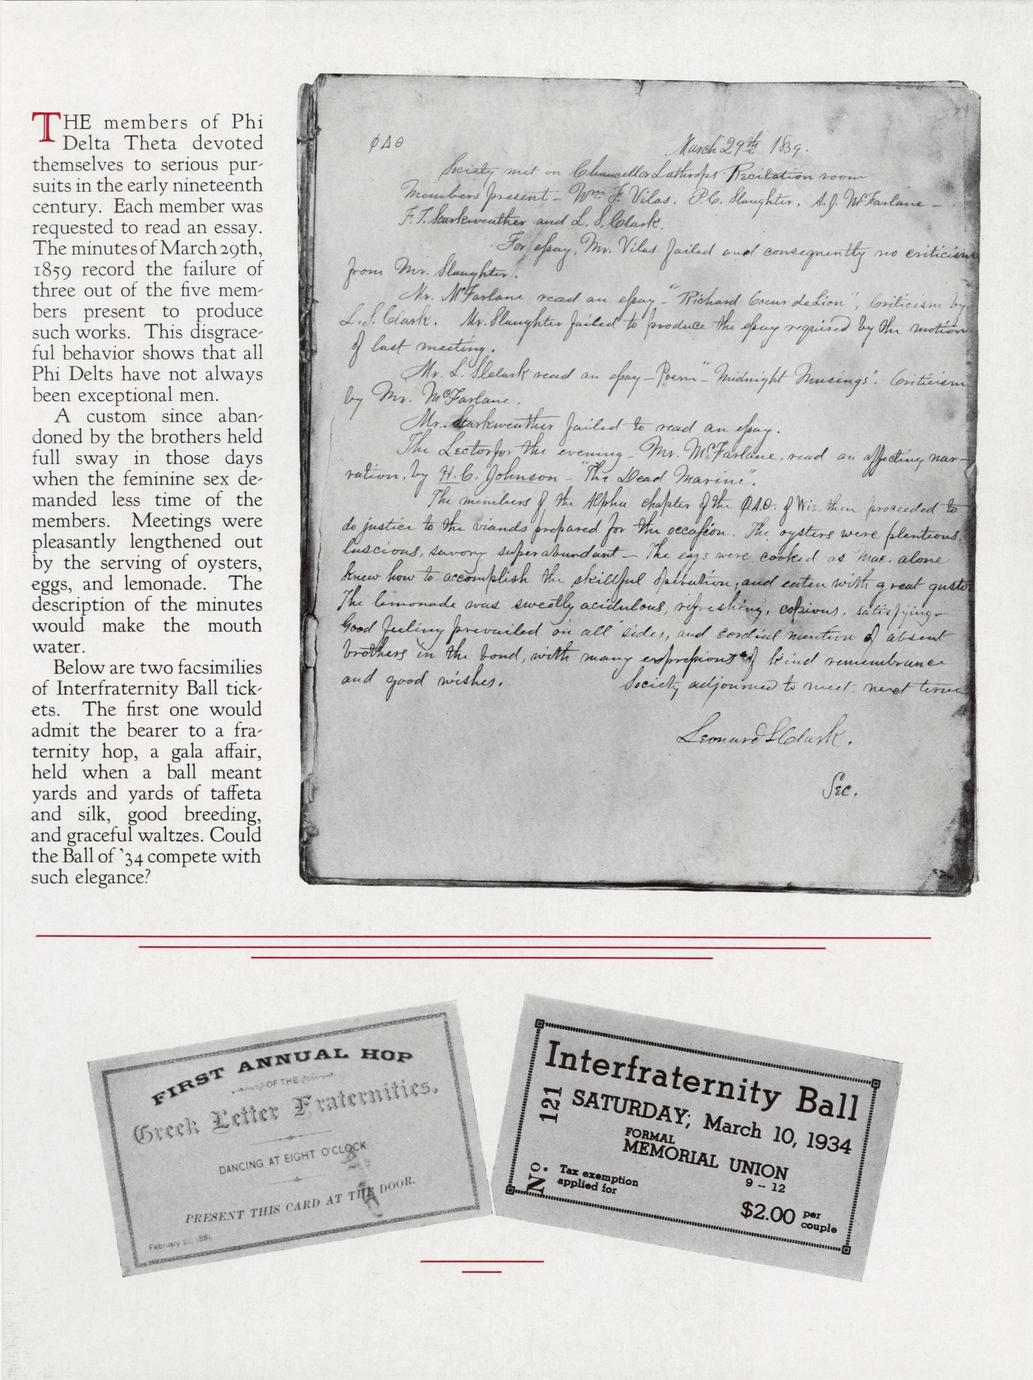 THE members of Phi
Delta Theta devoted
themselves to serious pur-
suits in the early nineteenth
century. Each member was
requested to read an essay.
The minutes of March 29th,
1859 record the failure of
three out of the five mem-
bers present to produce
such works. This disgrace-
ful behavior shows that all
Phi Delts have not always
been exceptional men.
A custom since aban-
doned by the brothers held
full sway in those days
when the feminine sex de-
manded less time of the
members. Meetings were
pleasantly lengthened out
by the serving of oysters,
eggs, and lemonade. The
description of the minutes
would make the mouth
water.
Below are two facsimilies
of Interfraternity Ball tick-
ets. The first one would
admit the bearer to a fra-
ternity hop, a gala affair,
held when a ball meant
yards and yards of taffeta
and silk, good breeding,
and graceful waltzes. Could
the Ball of '34 compete with
such elegance?
ΦΔΘ
March 29th 1859.
Society met in Chancellor Lathrop's Recitation room
Members present - Wm. F. Vilas. P.C. Slaughter. A.J. McFarlane -
F.T. Starkweather and L.S. Clark.
For essay, Mr. Vilas failed and consequently no criticism
from Mr. Slaughter.
Mr. McFarlane read an essay - "Richard Coeur de Lion", Criticism by
L.S. Clark. Mr. Slaughter failed to produce the essay required by the motion
of last meeting.
Mr. L. S. Clark read an essay - Poem - "Midnight Musings". Criticism
by Mr. McFarlane.
Mr. Starkweather failed to read an essay.
The Lector for the evening - Mr. McFarlane, read an affecting nar-
ration, by H. C. Johnson - "The Dead Marine".
The members of the Alpha chapter of the ΦΔΘ. of Wis. then proceeded to
do justice to the viands prepared for the occasion. The oysters were plentious,
luscious, savory superabundant - The eggs were cooked as Mac. alone
knew how to accomplish the skillful operation, and eaten with great gusto
The lemonade was sweetly acidulous, refreshing, copious, satisfying -
Good feeling prevailed on all sides, and cordial mention of absent
brothers in the bond, with many expressions of kind remembrance
and good wishes. Society adjourned to meet next time
Leonard S. Clark.
Sec.
FIRST ANNUAL HOP
OF THE
Greek Letter Fraternities,
DANCING AT EIGHT O'CLOCK
PRESENT THIS CARD AT THE DOOR.
February
Interfraternity Ball
SATURDAY; March 10, 1934
FORMAL
MEMORIAL UNION
9 -- 12
No. 121
Tax exemption
applied for
$2.00 per
couple